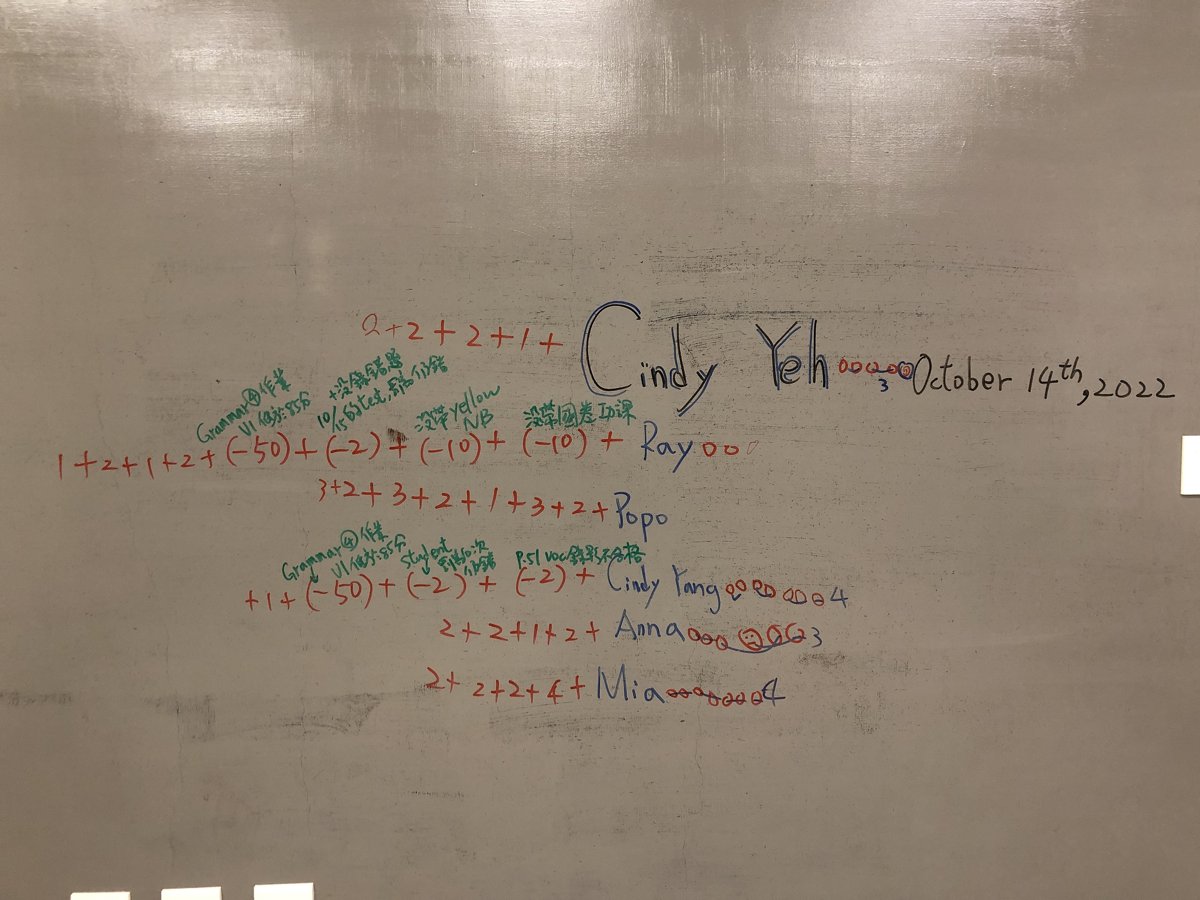 2+2+2+1+ Cindy Yeh 3 October 14th, 2022
Grammar④作業
+沒錄錯題
10/15的test,
沒帶Yellow NB
沒帶國卷功課
1+2+1+2+(-50)+(-2)+(-10)+(-10)+ Ray
3+2+3+2+1+3+2+Popo
Grammar④作業
Student
P.51 voc錄影不合格
+1+(-50)+(-2)+(-2)+ Cindy Yang 4
2+2+1+2+ Anna 3
2+2+2+4+ Mia 4